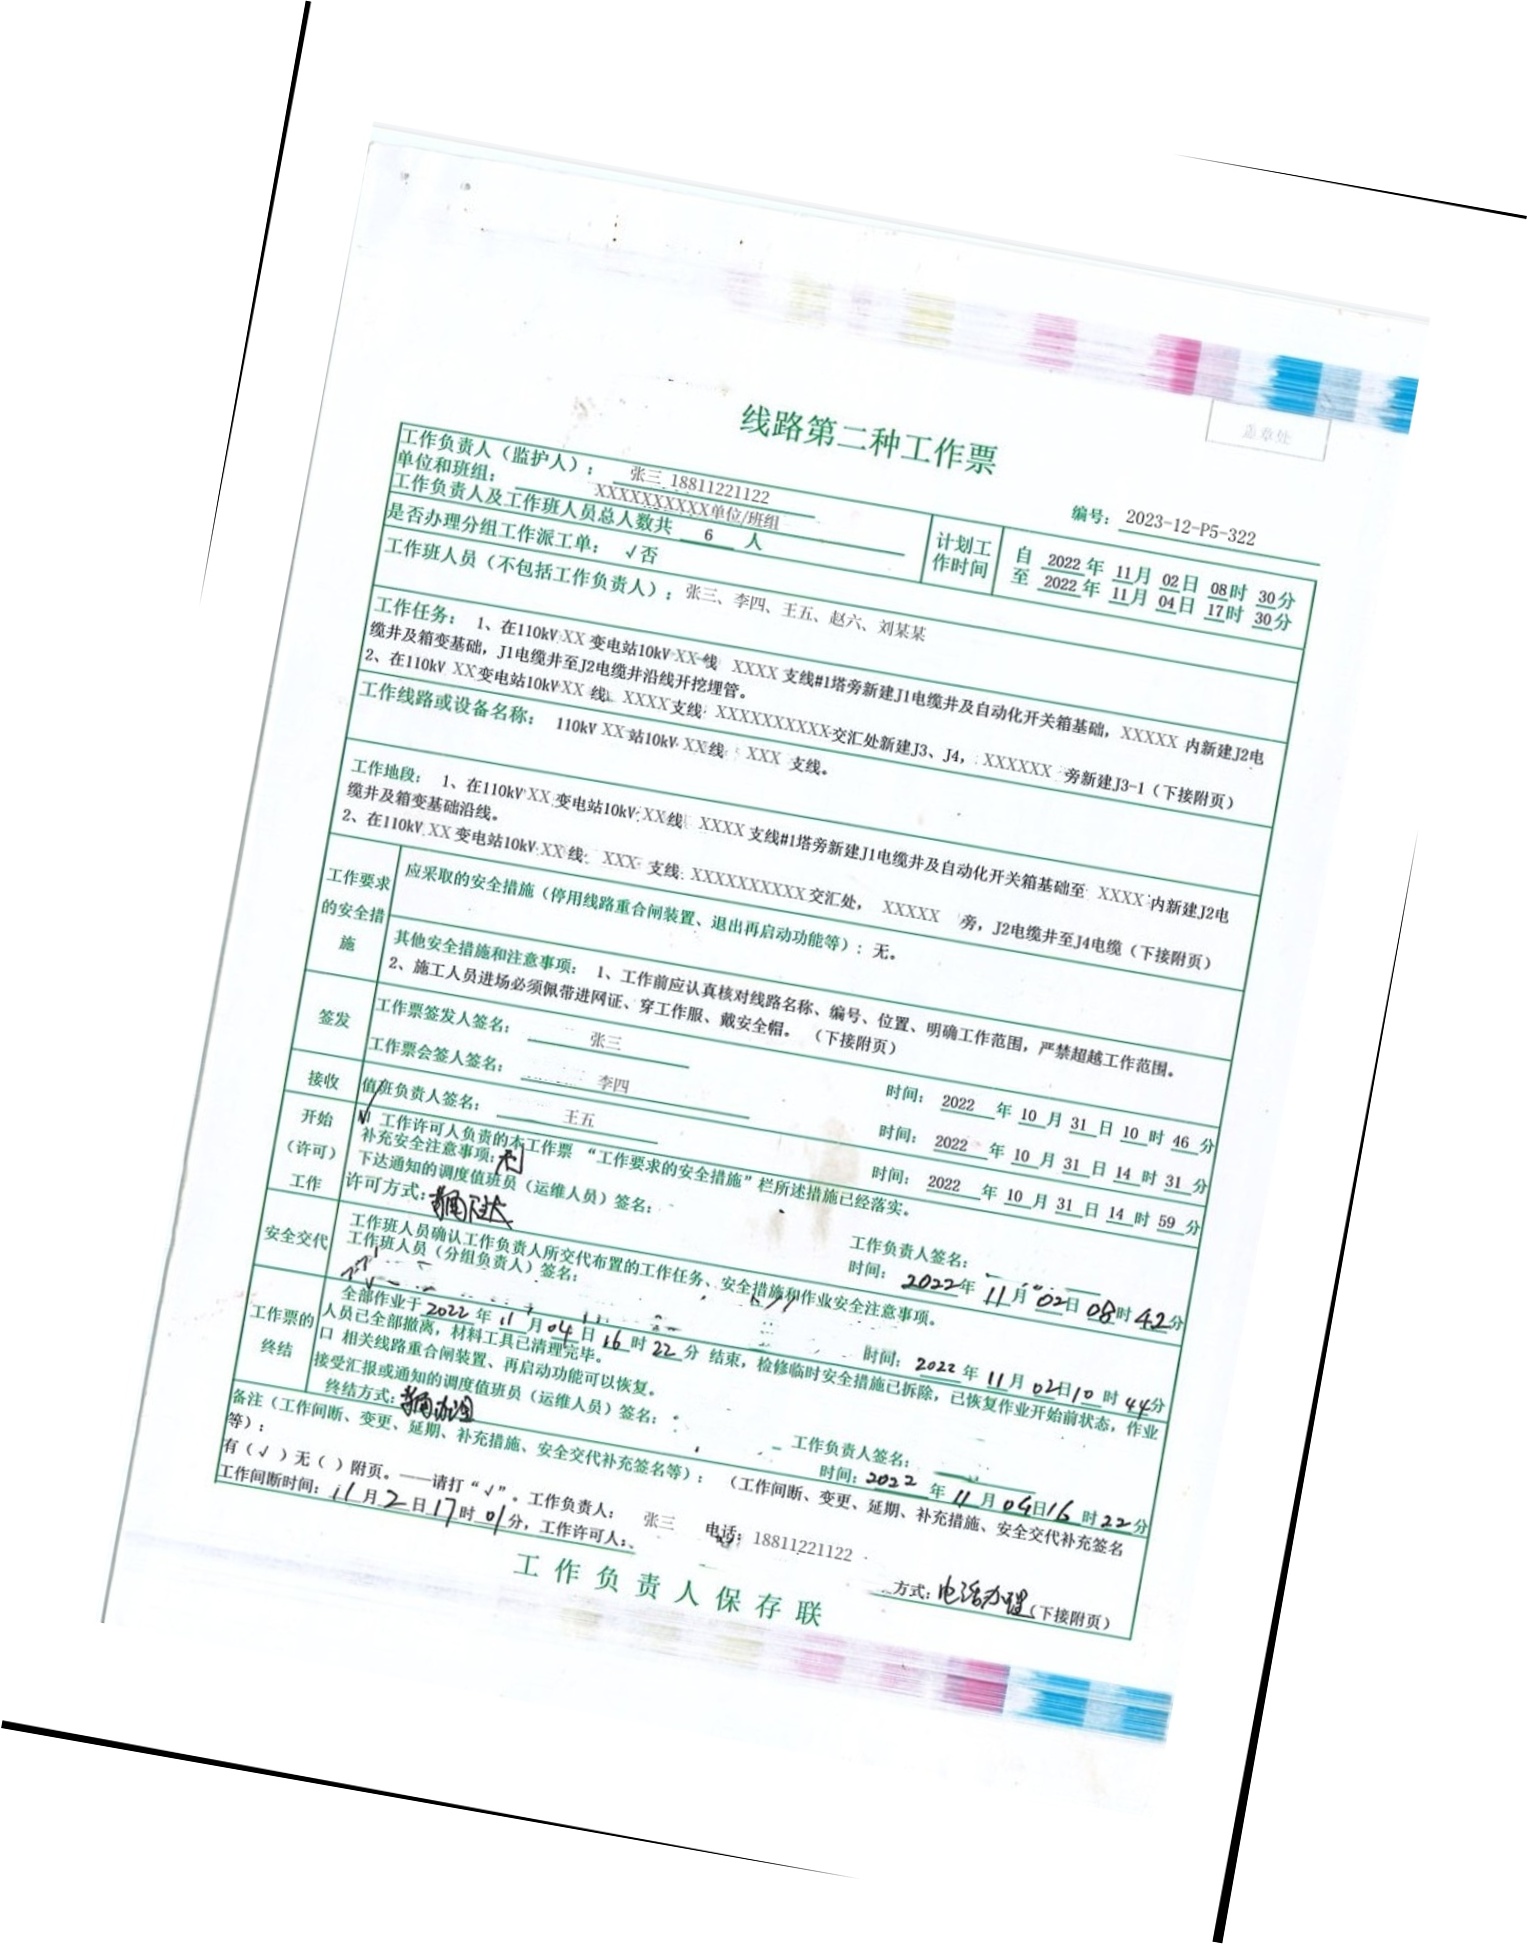 盖章处
线路第二种工作票
编号： 2023-12-P5-322
工作负责人（监护人）： 张三 18811221122
单位和班组： XXXXXXXXXX单位/班组
工作负责人及工作班人员总人数共 6 人
是否办理分组工作派工单： √否
计划工作时间
自 2022 年 11 月 02 日 08 时 30 分
至 2022 年 11 月 04 日 17 时 30 分
工作班人员（不包括工作负责人）： 张三、李四、王五、赵六、刘某某
工作任务： 1、在110kV XX 变电站10kV XX 线 XXXX 支线#1塔旁新建J1电缆井及自动化开关箱基础， XXXXX 内新建J2电
缆井及箱变基础，J1电缆井至J2电缆井沿线开挖埋管。
2、在110kV XX变电站10kV XX 线 XXXX支线 XXXXXXXXXX 交汇处新建J3、J4， XXXXXX 旁新建J3-1（下接附页）
工作线路或设备名称： 110kV XX 站10kV XX线 XXX 支线。
工作地段： 1、在110kV XX 变电站10kV XX线 XXXX 支线#1塔旁新建J1电缆井及自动化开关箱基础至 XXXX 内新建J2电
缆井及箱变基础沿线。
2、在110kV XX 变电站10kV XX 线 XXX 支线 XXXXXXXXXX 交汇处， XXXXX 旁，J2电缆井至J4电缆（下接附页）
工作要求的安全措施
应采取的安全措施（停用线路重合闸装置、退出再启动功能等）: 无。
其他安全措施和注意事项： 1、工作前应认真核对线路名称、编号、位置、明确工作范围，严禁超越工作范围。
2、施工人员进场必须佩带进网证、穿工作服、戴安全帽。 （下接附页）
签发
工作票签发人签名： 张三 时间： 2022 年 10 月 31 日 10 时 46 分
工作票会签人签名： 李四 时间： 2022 年 10 月 31 日 14 时 31 分
接收
值班负责人签名： 王五 时间： 2022 年 10 月 31 日 14 时 59 分
开始（许可）工作
工作许可人负责的本工作票 “工作要求的安全措施”栏所述措施已经落实。
补充安全注意事项：
下达通知的调度值班员（运维人员）签名： 工作负责人签名：
许可方式： 时间： 2022年 11月 02日 08时 42分
安全交代
工作班人员确认工作负责人所交代布置的工作任务、安全措施和作业安全注意事项。
工作班人员（分组负责人）签名：
时间： 2022 年 11 月 02日10 时 44分
工作票的终结
全部作业于2022 年 11 月 04 日 16 时 22 分 结束，检修临时安全措施已拆除，已恢复作业开始前状态，作业
人员已全部撤离，材料工具已清理完毕。
口 相关线路重合闸装置、再启动功能可以恢复。
接受汇报或通知的调度值班员（运维人员）签名： 工作负责人签名：
终结方式： 时间：2022 年 11 月 04日16 时 22分
备注（工作间断、变更、延期、补充措施、安全交代补充签名等）： （工作间断、变更、延期、补充措施、安全交代补充签名
等）：
有（√ ）无（ ）附页。——请打“√”。工作负责人： 张三 电话：18811221122
工作间断时间：11月 2 日 17时 01分，工作许可人： 方式：电话办理（下接附页）
工作负责人保存联